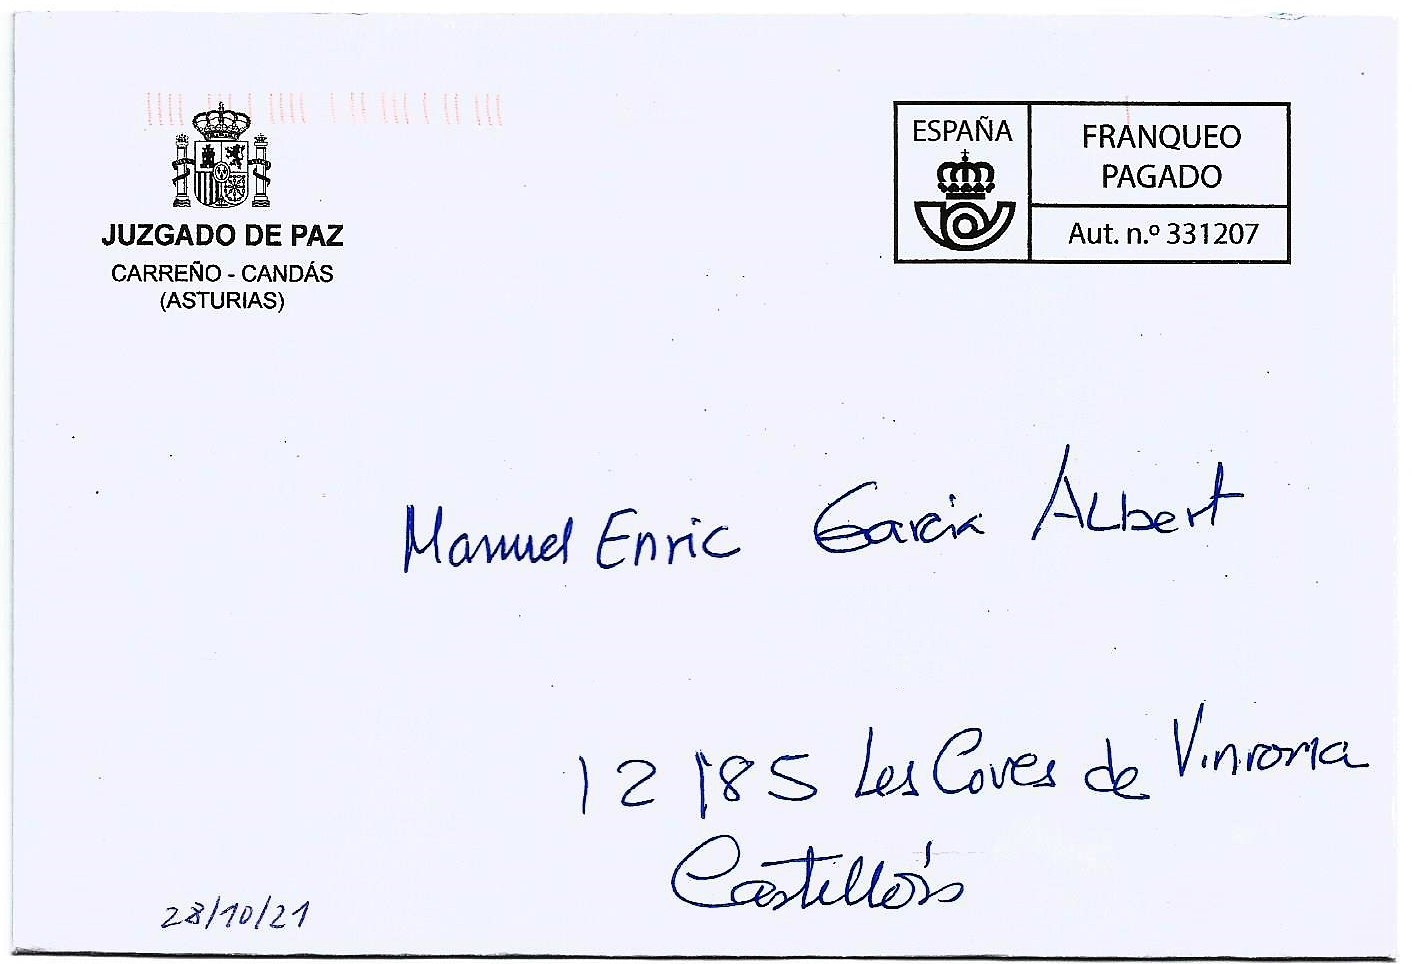 JUZGADO DE PAZ
CARREÑO - CANDÁS
(ASTURIAS)
ESPAÑA
FRANQUEO
PAGADO
Aut. n.º 331207
Manuel Enric García Albert
12185 Les Coves de Vinroma
28/10/21